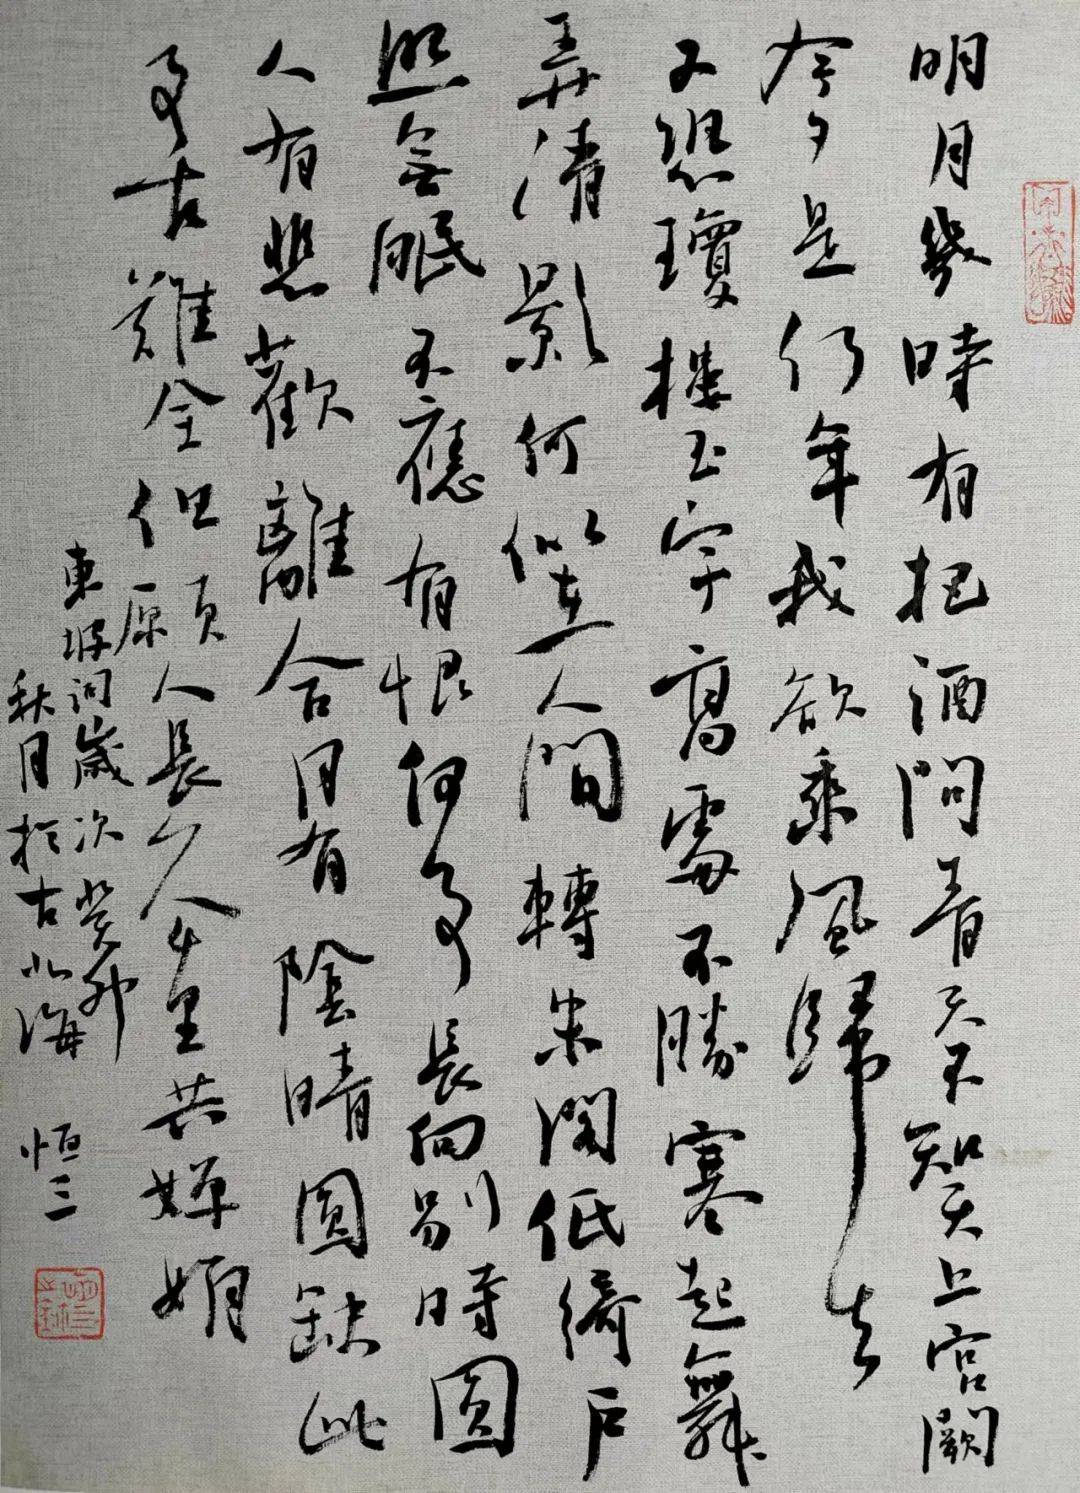 明月幾時有把酒問青天不知天上宮闕
今夕是何年我欲乘風歸去
又恐瓊樓玉宇高處不勝寒起舞
弄清影何似在人間轉朱閣低綺戶
照無眠不應有恨何事長向別時圓
人有悲歡離合月有陰晴圓缺此
事古難全但願人長久千里共嬋娟
東坡詞歲次癸卯
秋月於古北海 恒三